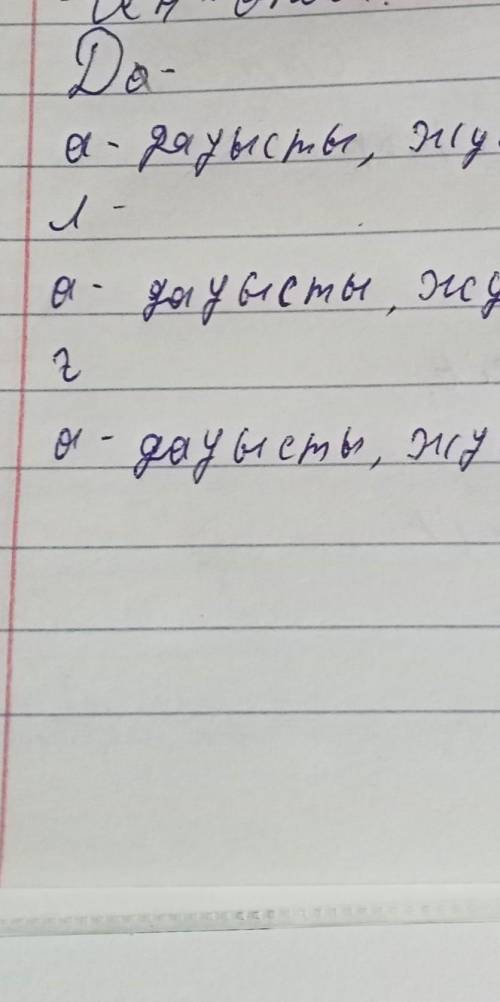 Да-
а- дауысты, жу
л -
а- дауысты, жу
г
а - дауысты, жу